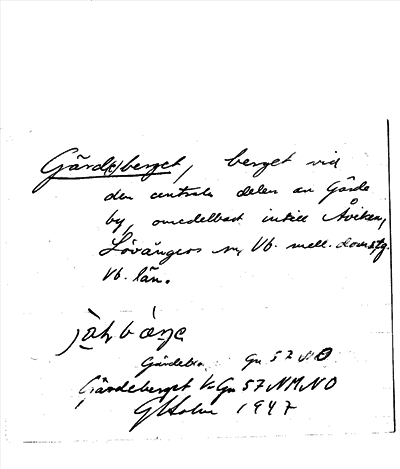 Gärd(e)berget, berget vid
den centrala delen av Gärde
by, omedelbart intill Åviken,
Lövångers sn, Vb. mell. doms.
Vb. län.
Gärdeber Gu 57
Gärdeberget Gu 57 NMNO
GHolm 1947